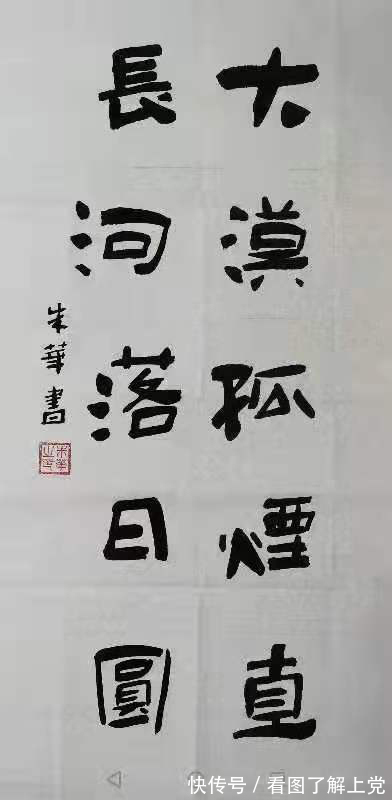 大漠孤煙直
長河落日圓
朱華書
快传号/看图了解上党